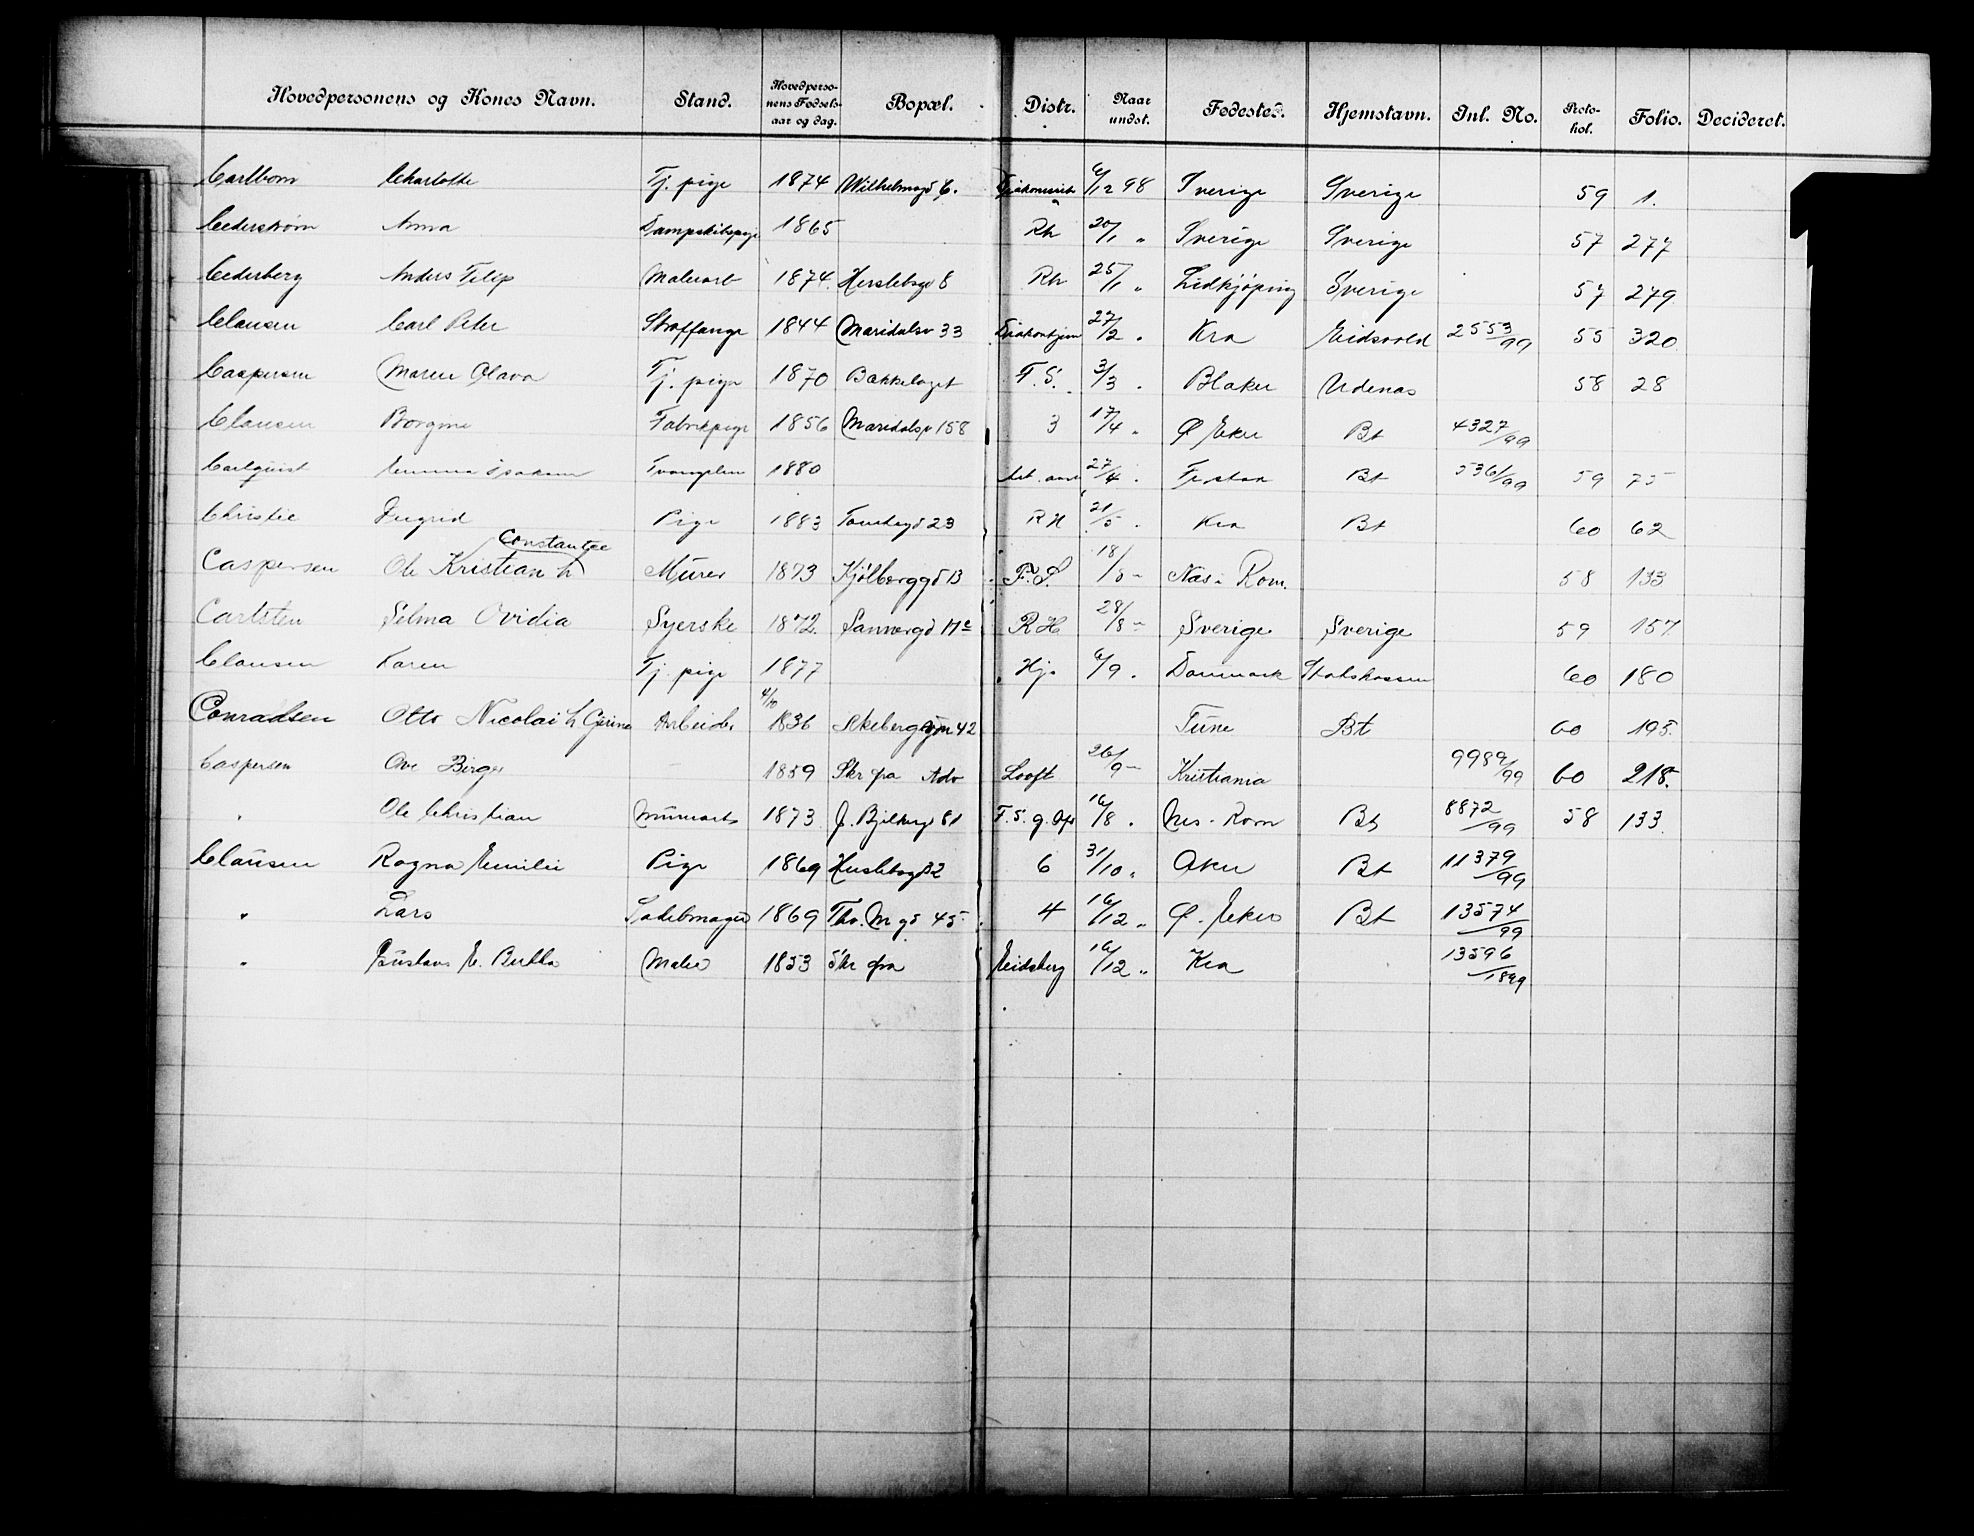 Hovedpersonens og Kones Navn. Stand. Hovedpersonens Fødselsaar og dag. Bopæl. Distr. Naar undst. Fødested. Hjemstavn. Inl. No. Protokol. Folio. Decideret.
Carlbom Charlotte Tj. pige 1874 Wilhelmsgd 6. 6/12 98 Sverige Sverige 59 1.
Cederstrøm Anna Dampskibspige 1865 Rh 20/1 " Sverige Sverige 57 277
Cederberg Anders Filip Malerarb 1874. Herslebsgd 8 Rh 25/1 " Lidkjøping Sverige 57 279
Clausen Carl Peter Straffange 1844 Maridalsv 33 Diakonhjem 27/2 " Kra Eidsvold 2553/99 55 320
Caspersen Maren Olava Tj. pige 1870 Bækkelaget F. S. 3/3 " Blaker Udenas 58 28
Clausen Borgine Fabrikpige 1856 Maridalsv 158 3 17/4 " Ø Eker Bt 4327/99
Carlquist Emma 1880 27/4 " Bt 536/99 59 75
Christie Ingrid Pige 1883 23 R H 21/5 " Kra Bt 60 62
Constantse
Caspersen Ole Kristian h Murer 1873 Kjølberggd 13 F. S. 18/8 " Næs i Rom. 58 133
Carlsten Selma Ovidia Syerske 1872. Sannergd 17c R H 28/8 " Sverige Sverige 59 157
Clausen Karen Tj. pige 1877 Hjs 6/9 " Danmark Statskassen 60 180
Conradsen Otto Nicolai h Gurine Arbeider 4/10 1836 Ekeberg 42 Tune Bt 60 195.
Caspersen Ove Birger 1859 Skr fra Adv Looft 26/9 " Kristiania 9989/99 60 218.
" Ole Christian Murerarb 1873 J. Bjelkesgd 81 F. S. g. Ops 16/8 " Nes - Rom Bt 8872/99 58 133.
Clausen Ragna Emilie Pige 1869 Herslebsgd 32 6 31/10 " Aker Bt 11379/99
" Lars Sadelmager 1869 Thv. M gd 45 4 16/12 " Ø. Eker Bt 13574/99
" Gustava E. Bertha Maler 1853 Skr fra Eidsberg 16/12 " Kra 13596/1899